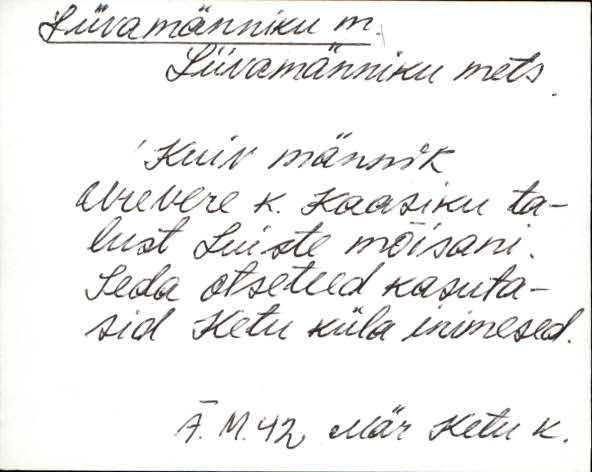 Liivamänniku m.
Liivamänniku mets.
Kuiv männik
Urevere k. Kaasiku ta-
lust Luiste mõisani.
Seda otseteed kasuta-
sid Ketu küla inimesed.
Ā. M. 42, Mär Ketu k.